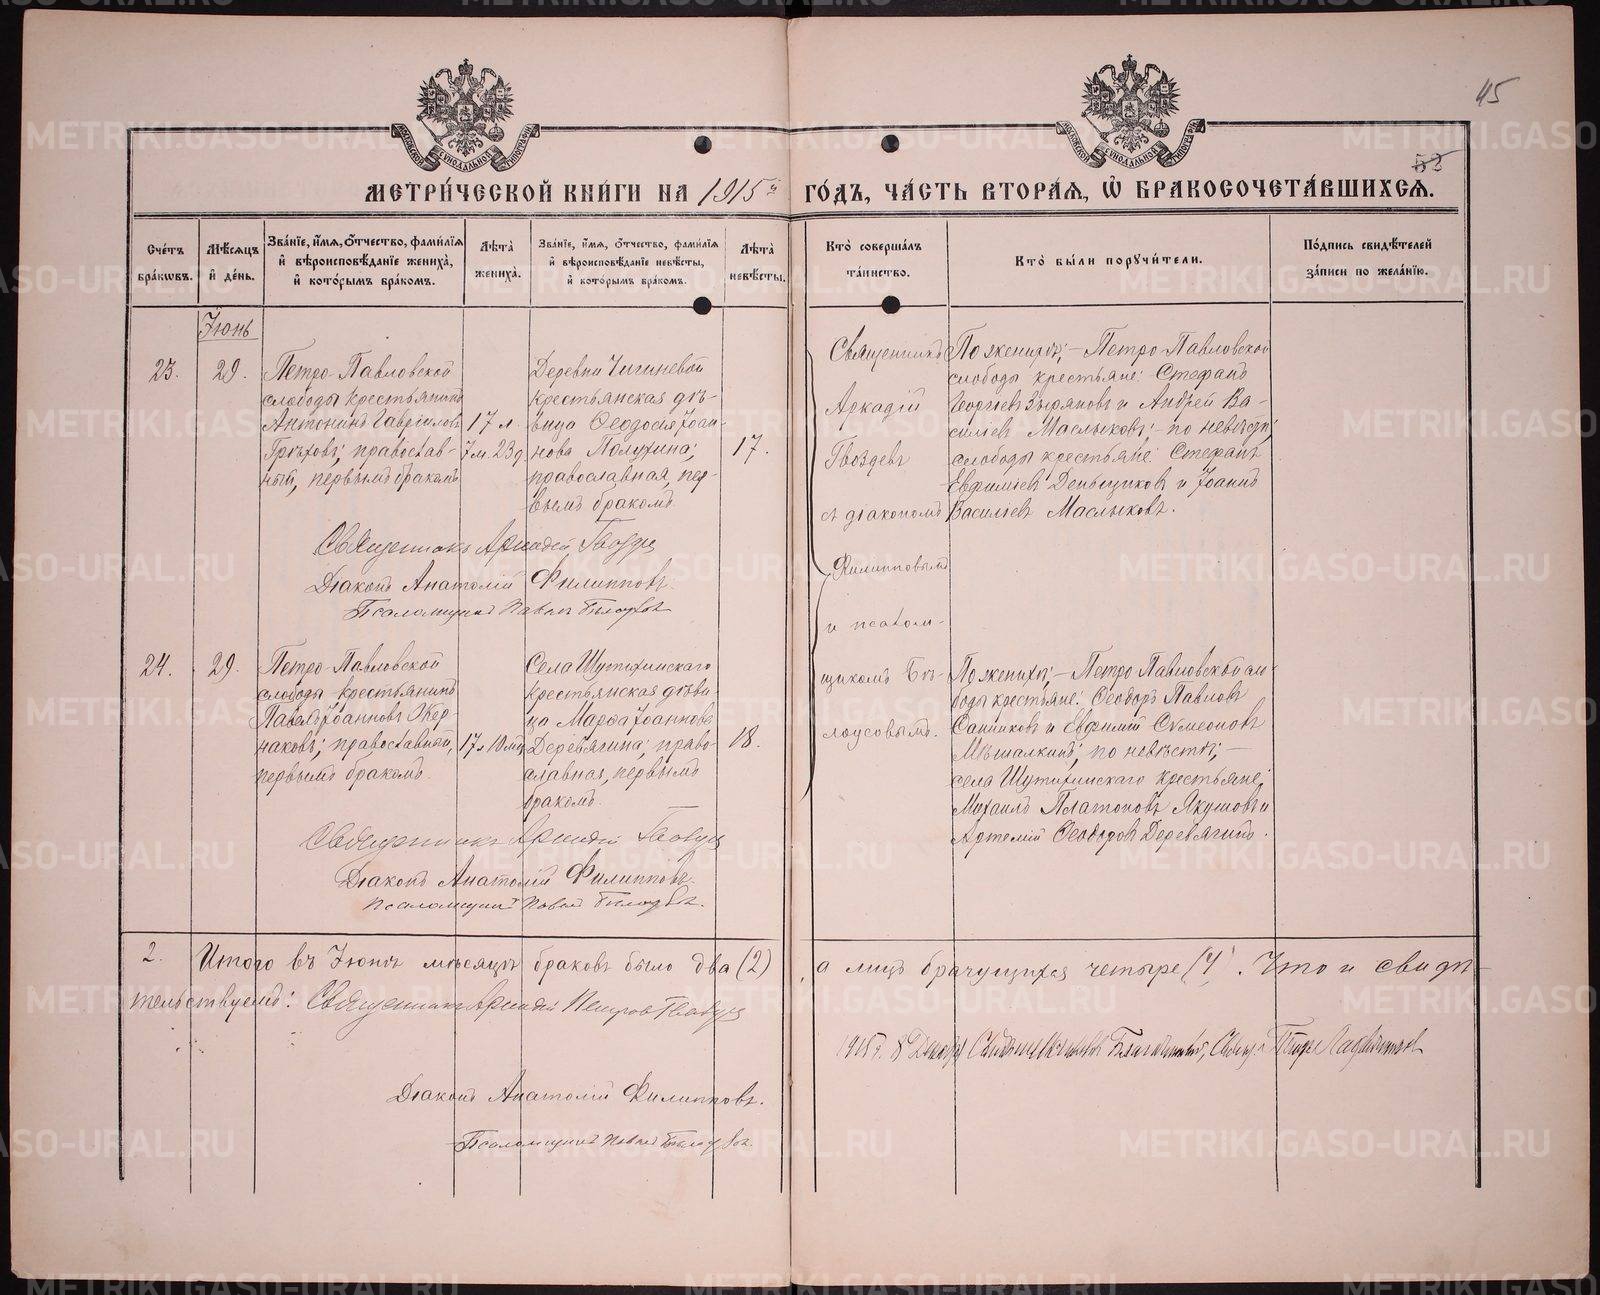 45
53
МЕТРИ́ЧЕСКОЙ КНИ́ГИ НА 1915й ГО́ДЪ, ЧА́СТЬ ВТОРА́Я, Ѡ БРАКОСОЧЕТА́ВШИХСЯ.
Сче́тъ бра́кѡвъ.
Мѣ́сяцъ и де́нь.
Зва́нїе, и́мя, о́тчество, фами́лїя и вѣроисповѣ́данїе жениха̀, и кото́рымъ бра́комъ.
Лѣта̀ жениха̀.
Зва́нїе, и́мя, о́тчество, фами́лїя и вѣроисповѣ́данїе невѣ́сты, и кото́рымъ бра́комъ.
Лѣта̀ невѣ́сты.
Кто̀ соверша́лъ та́инство.
Кто̀ бы́ли порꙋчи́тели.
По́дпись свидѣ́телей за́писи по жела́нїю.
Іюнь
23.
29.
Петро-Павловской
слободы крестьянинъ
Антонинъ Гавріиловъ
Грѣховъ; православ-
ный, первымъ бракомъ
17 л.
7 м. 23 д.
Деревни Чигиневой
крестьянская дѣ-
вица Ѳеодосія Іоан-
нова Полухина;
православная, пер-
вымъ бракомъ.
17.
Священникъ
Аркадій
Гвоздевъ
съ діакономъ
Филипповымъ
и псалом-
щикомъ Бѣ-
лоусовымъ.
По женихѣ; – Петро-Павловской
слободы крестьяне: Стефанъ
Георгіевъ Зыряновъ и Андрей Ва-
сильевъ Маслыковъ; – по невѣстѣ;
слободы крестьяне: Стефанъ
Евфиміевъ Деньщиковъ и Іоаннъ
Васильевъ Маслыковъ.
Священникъ Аркадій Гвоздевъ
Діаконъ Анатолій Филипповъ.
Псаломщикъ Павелъ Бѣлоусовъ
24.
29.
Петро-Павловской
слободы крестьянинъ
Павелъ Іоанновъ Жер-
наковъ; православный,
первымъ бракомъ.
17 л 10 м
Села Шутихинскаго
крестьянская дѣви-
ца Марѳа Іоаннова
Деревягина; право-
славная, первымъ
бракомъ.
18.
По женихѣ; – Петро-Павловской сло-
боды крестьяне: Ѳеодоръ Павловъ
Санниковъ и Евфимій Сѵмеоновъ
Мѣшалкинъ; по невѣстѣ; –
села Шутихинскаго крестьяне:
Михаилъ Платоновъ Якушовъ и
Артемій Ѳеодоровъ Деревягинъ.
Священникъ Аркадій Гвоздевъ
Діаконъ Анатолій Филипповъ.
Псаломщикъ Павелъ Бѣлоусовъ.
2. Итого въ Іюнѣ мѣсяцѣ браковъ было два (2) а лицъ брачущихся четыре (4). Что и свидѣ-
тельствуемъ: Священникъ Аркадій Петровъ Гвоздевъ
Діаконъ Анатолій Филипповъ.
Псаломщикъ Павелъ Бѣлоусовъ.